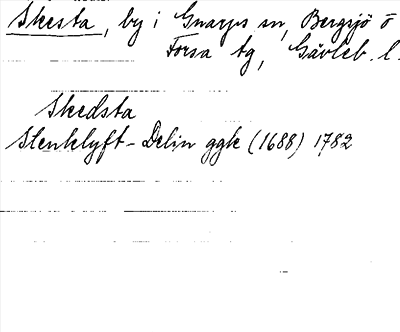 Skesta, by i Gnarps sn, Bergsjö o
Forsa tg, Gävleb. l.
Skedsta
Stenklyft - Delin ggk (1688) 1782